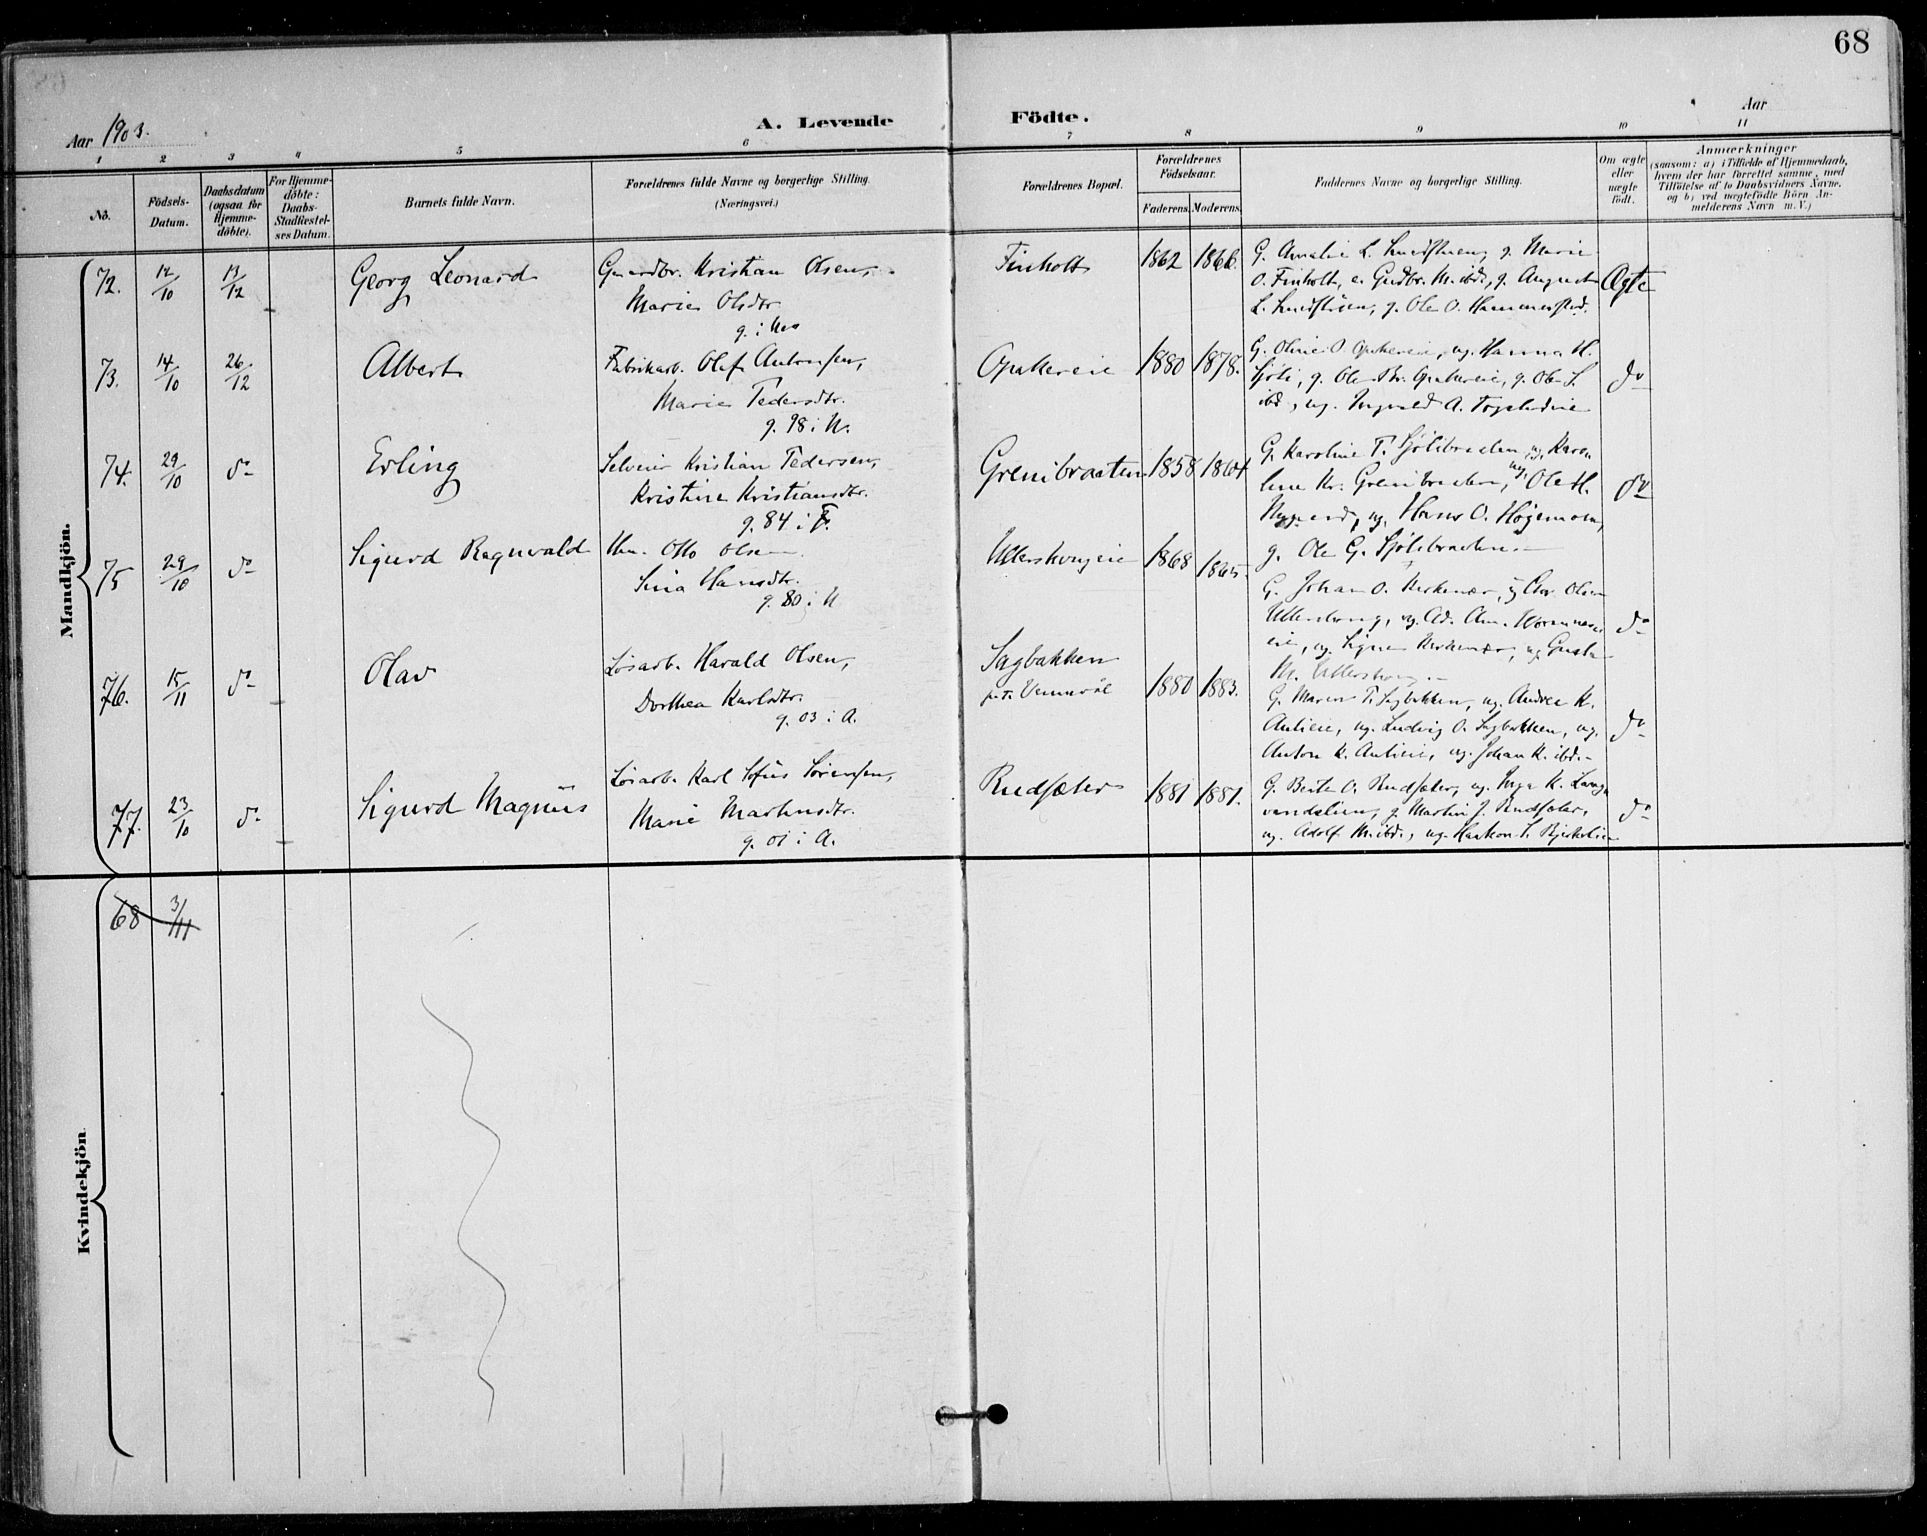 68
Aar 1903.
A. Levende Födte.
Aar
1 2 3 4 5 6 7 8 9 10 11
No.
Födsels-
Datum.
Daabsdatum
(ogsaa for
Hjemme-
döbte).
For Hjemme-
döbte:
Daabs-
Stadfæstel-
ses Datum.
Barnets fulde Navn.
Forældrenes fulde Navne og borgerlige Stilling.
(Næringsvei.)
Forældrenes Bopæl.
Forældrenes
Födselsaar.
Faderens. Moderens.
Faddernes Navne og borgerlige Stilling.
Om ægte
eller
uægte
födt.
Anmærkninger
(saasom: a) i Tilfælde af Hjemmedaab,
hvem der har forrettet samme, med
Tilföielse af to Daabsvidners Navne,
og b) ved uægtefödte Börn An-
melderens Navn m. V.)
Mandkjön.
72. 12/10 13/12 Georg Leonard
Gaardbr. Kristian Olsen,
Marie Olsdtr.
g. i Nes
Finholt 1862 1866.
G. Amalie L. g. Marie
O. Finholt, e. Gudbr. M. ibd., g. August
L. g. Ole O. Hammerstad.
Ægte
73. 14/10 26/12 Albert
Fabrikarb. Olaf Antonsen,
Marie Pedersdtr.
g. 98 i N.
Opakereie 1880 1878.
G. Oline O. Opakereie, ug. Hanna H.
Sjöli, g. Ole Kr. Opakereie, g. Ole S.
ibd., ug. Ingvald A.
do
74. 29/10 do Erling
Selveier Kristian Pedersen,
Kristine Kristiansdtr.
g. 84 i F.
Grenibraaten 1858 1864.
G. Karoline T. Sjölibraaten, ug. Karo-
line Kr. Grenibraaten, ug. Ole H.
Nygaard, ug. Hans O. Högemoen,
g. Ole G. Sjölibraaten.
do
75 29/10 do Sigurd Ragnvald
Hm. Otto Olsen
Sina Hansdtr.
g. 80 i N
Ullershougeie 1868 1865.
G. Johan O. Kirkenær, g Chr. Olsen
Ullershoug, ug. Ad. Chr.
eie, ug. Signe Kirkenær, ug Gusta
M. Ullershoug.
do
76. 15/11 do Olav
Løsarb. Harald Olsen,
Dorthea Karlsdtr.
g. 03 i A.
Sagbakken
1880 1883.
G. Maren T. Sagbakken, ug. Andrea K.
Aulieie, ug. Ludvig O. Sagbakken, ug.
Anton K. Aulieie, ug. Johan K. ibd.
do
77. 23/10 do Sigurd Magnus
Løsarb. Karl Sofus Sørensen,
Marie Martinsdtr.
g. 01 i A.
Rudsæter 1881 1881.
G. Berte O. Rudsæter, ug. Inga K.
g Martin J. Rudsæter,
ug. Adolf M. ibd., ug. Haakon
do
Kvindekjön
68 3/11